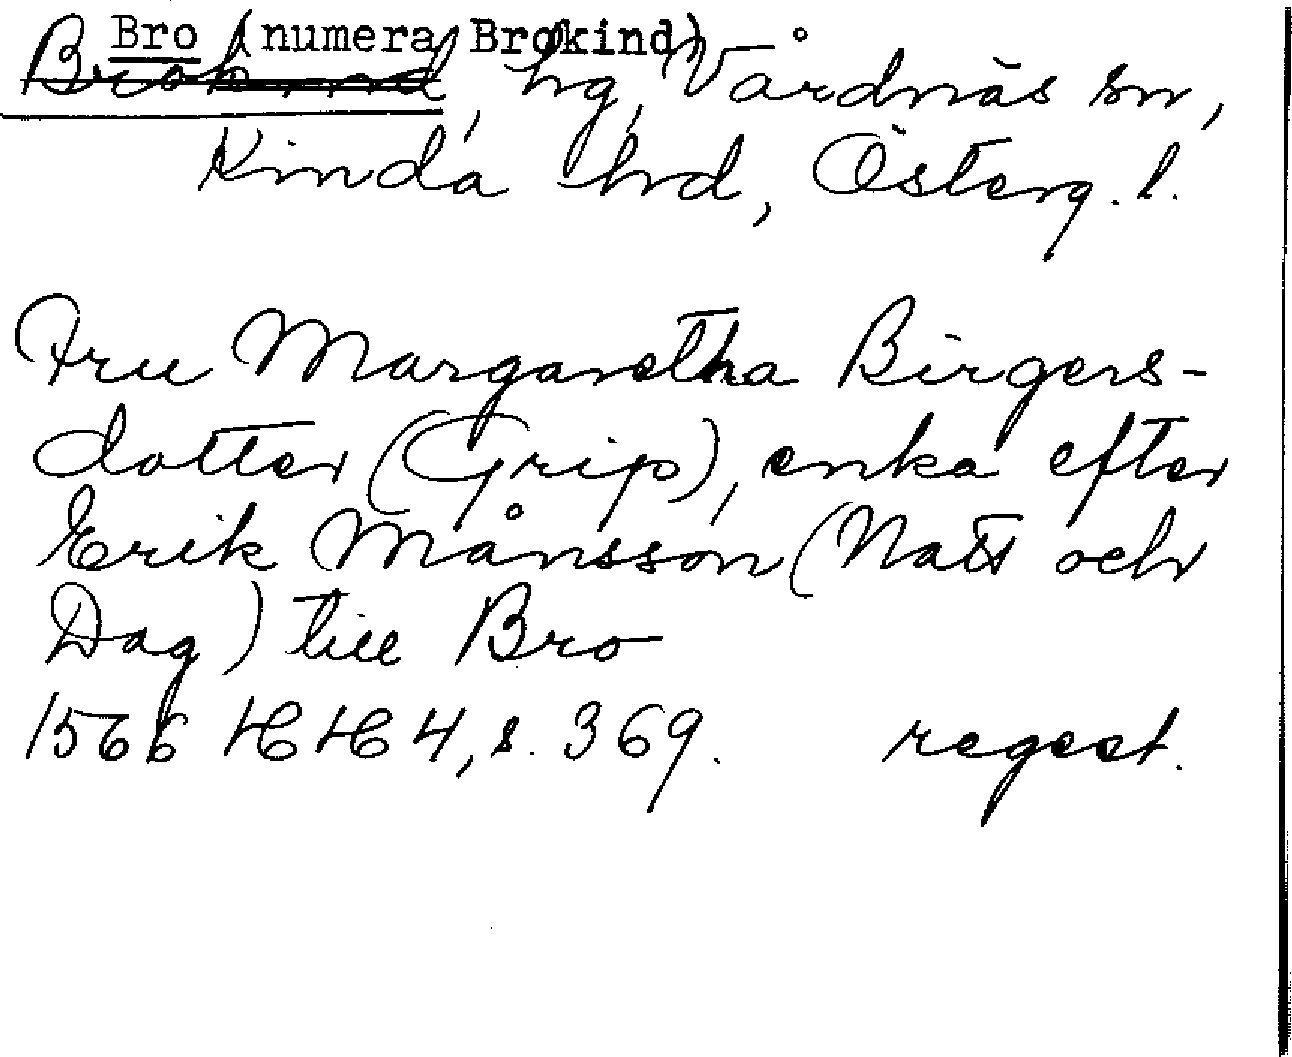 Bro (numera Brokind)
Brokind, hg, Vårdnäs sn,
Kinda hrd, Österg. l.
Fru Margaretha Birgers-
dotter (Grip), enka efter
Erik Månsson (Natt och
Dag) till Bro
1566 HH 4, s. 369. regest.